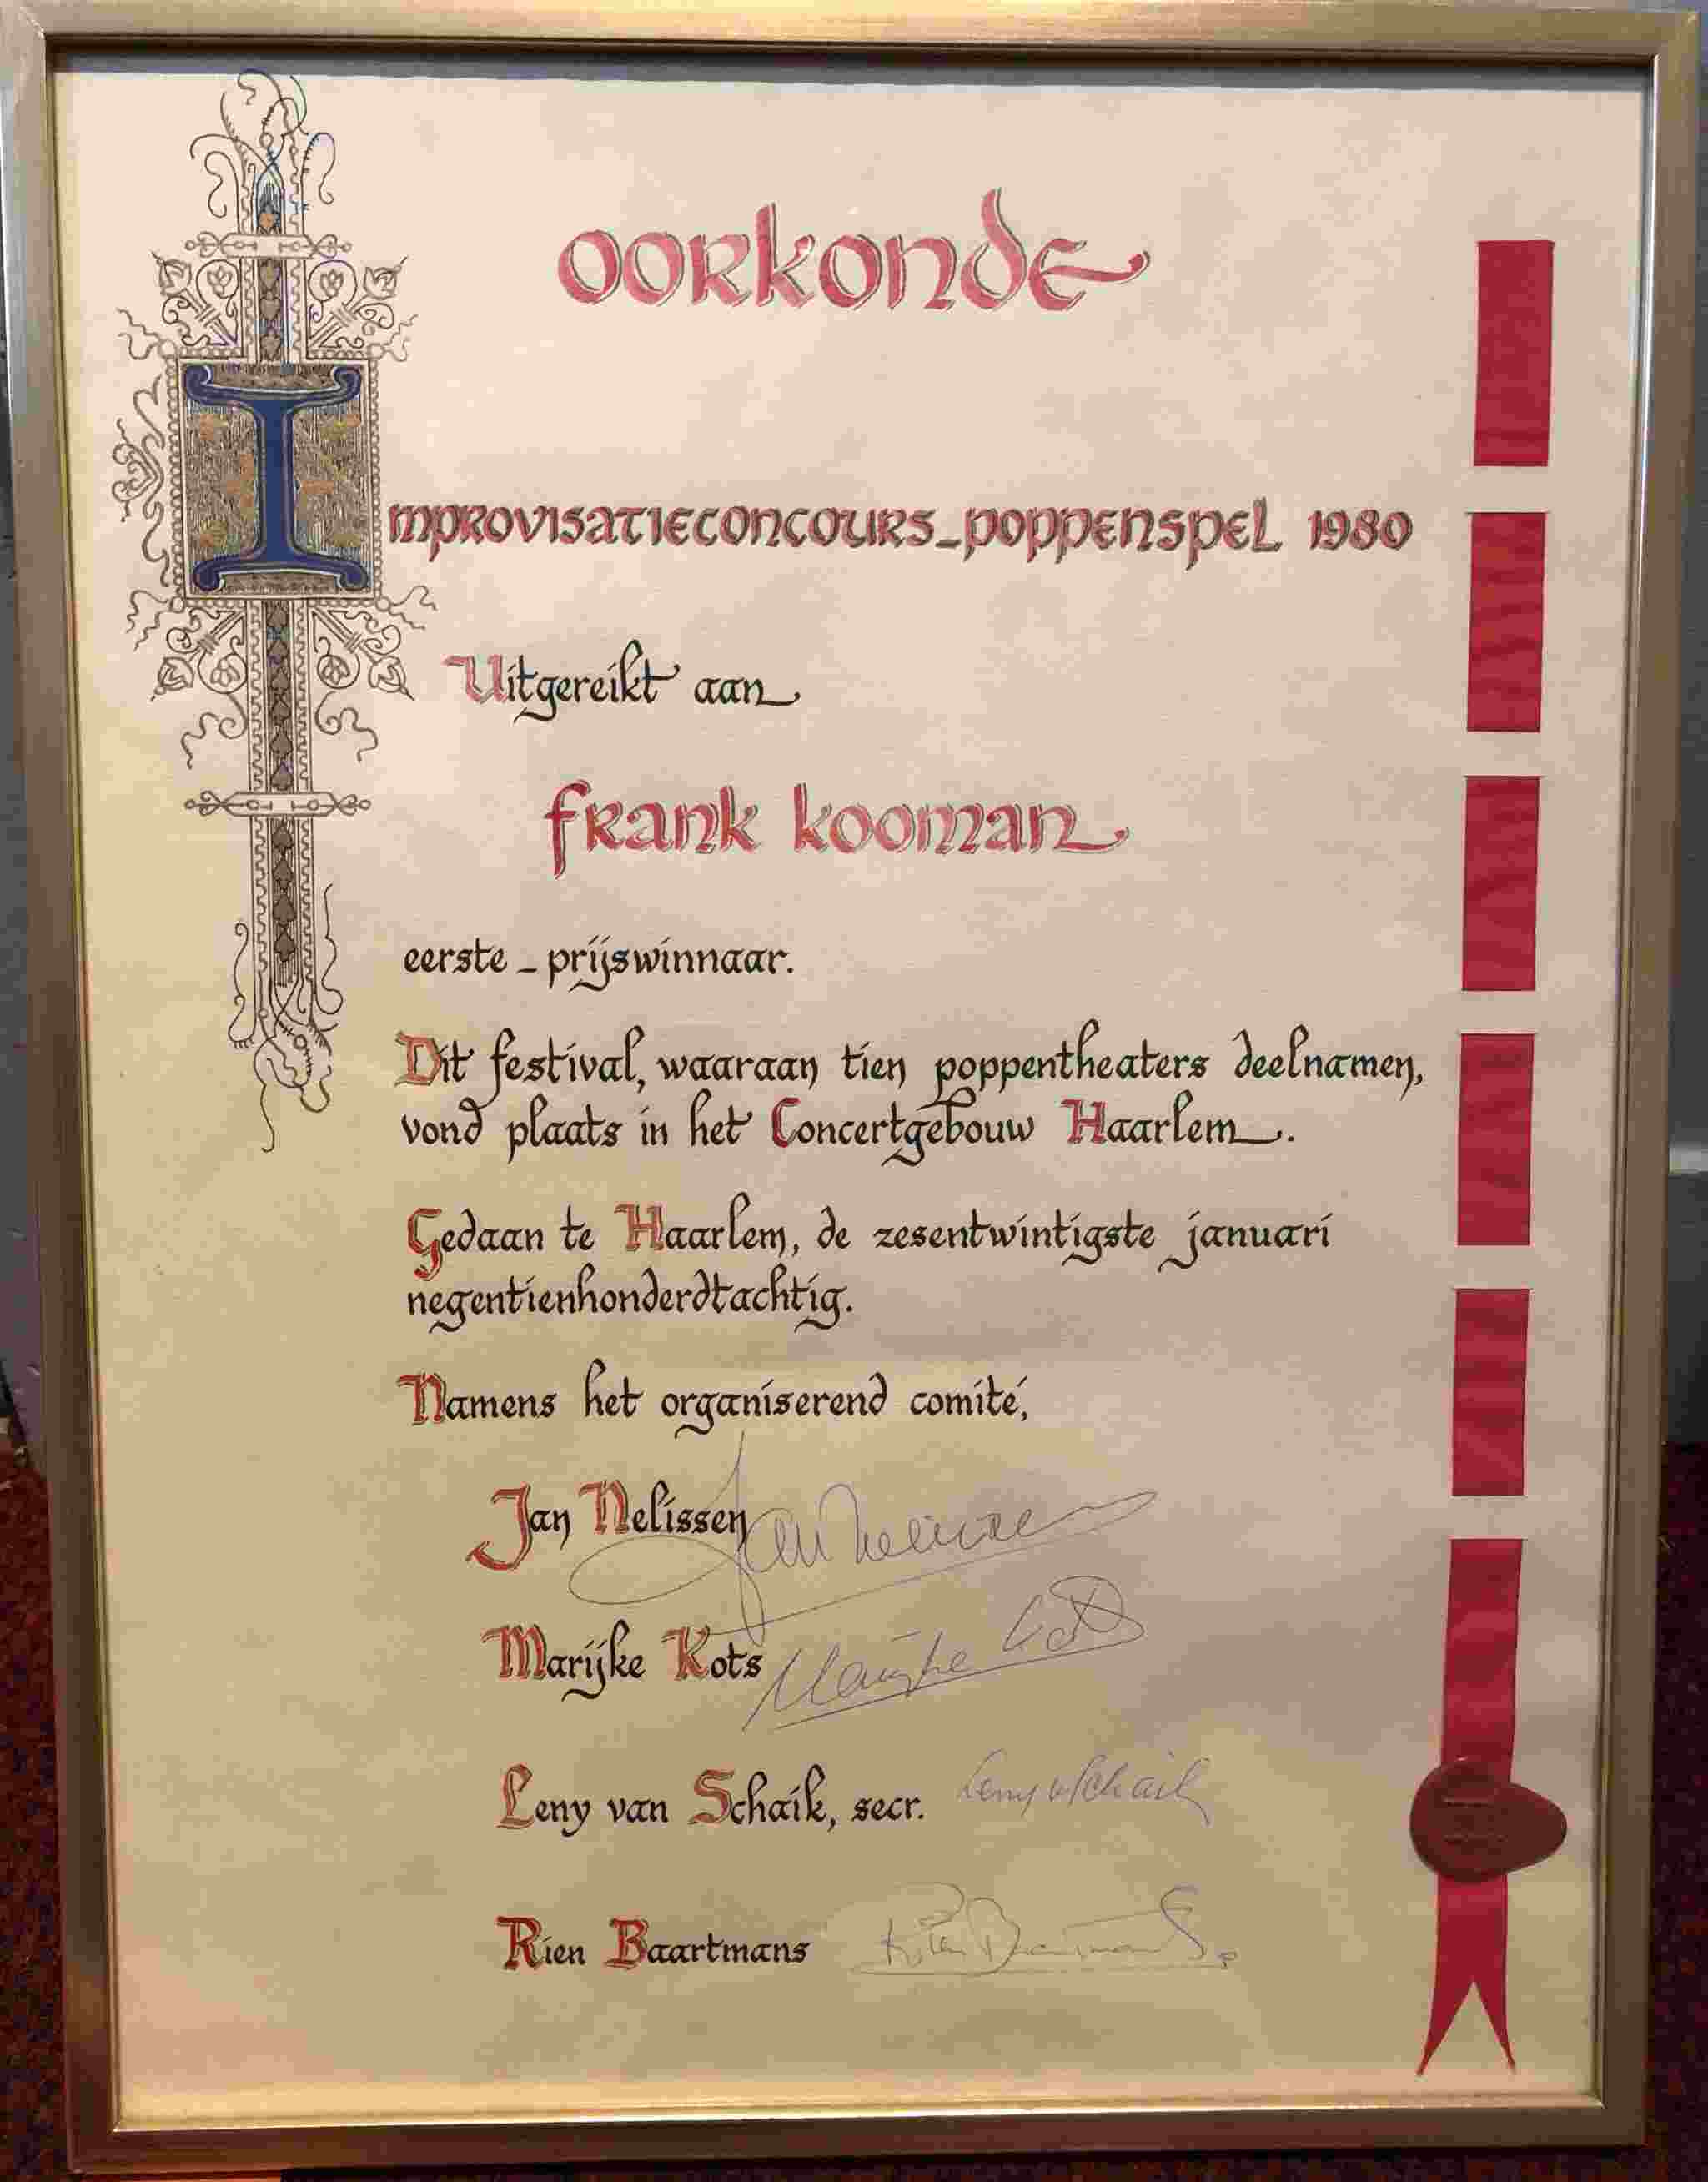 oorkonde
Improvisatieconcours-poppenspel 1980
Uitgereikt aan
frank kooman
eerste-prijswinnaar.
Dit festival, waaraan tien poppentheaters deelnamen,
vond plaats in het Concertgebouw Haarlem.
Gedaan te Haarlem, de zesentwintigste januari
negentienhonderdtachtig.
Namens het organiserend comité,
Jan Nelissen Jan Nelissen
Marijke Kots Marijke Kots
Leny van Schaik, secr. Leny v Schaik
Rien Baartmans Rien Baartmans